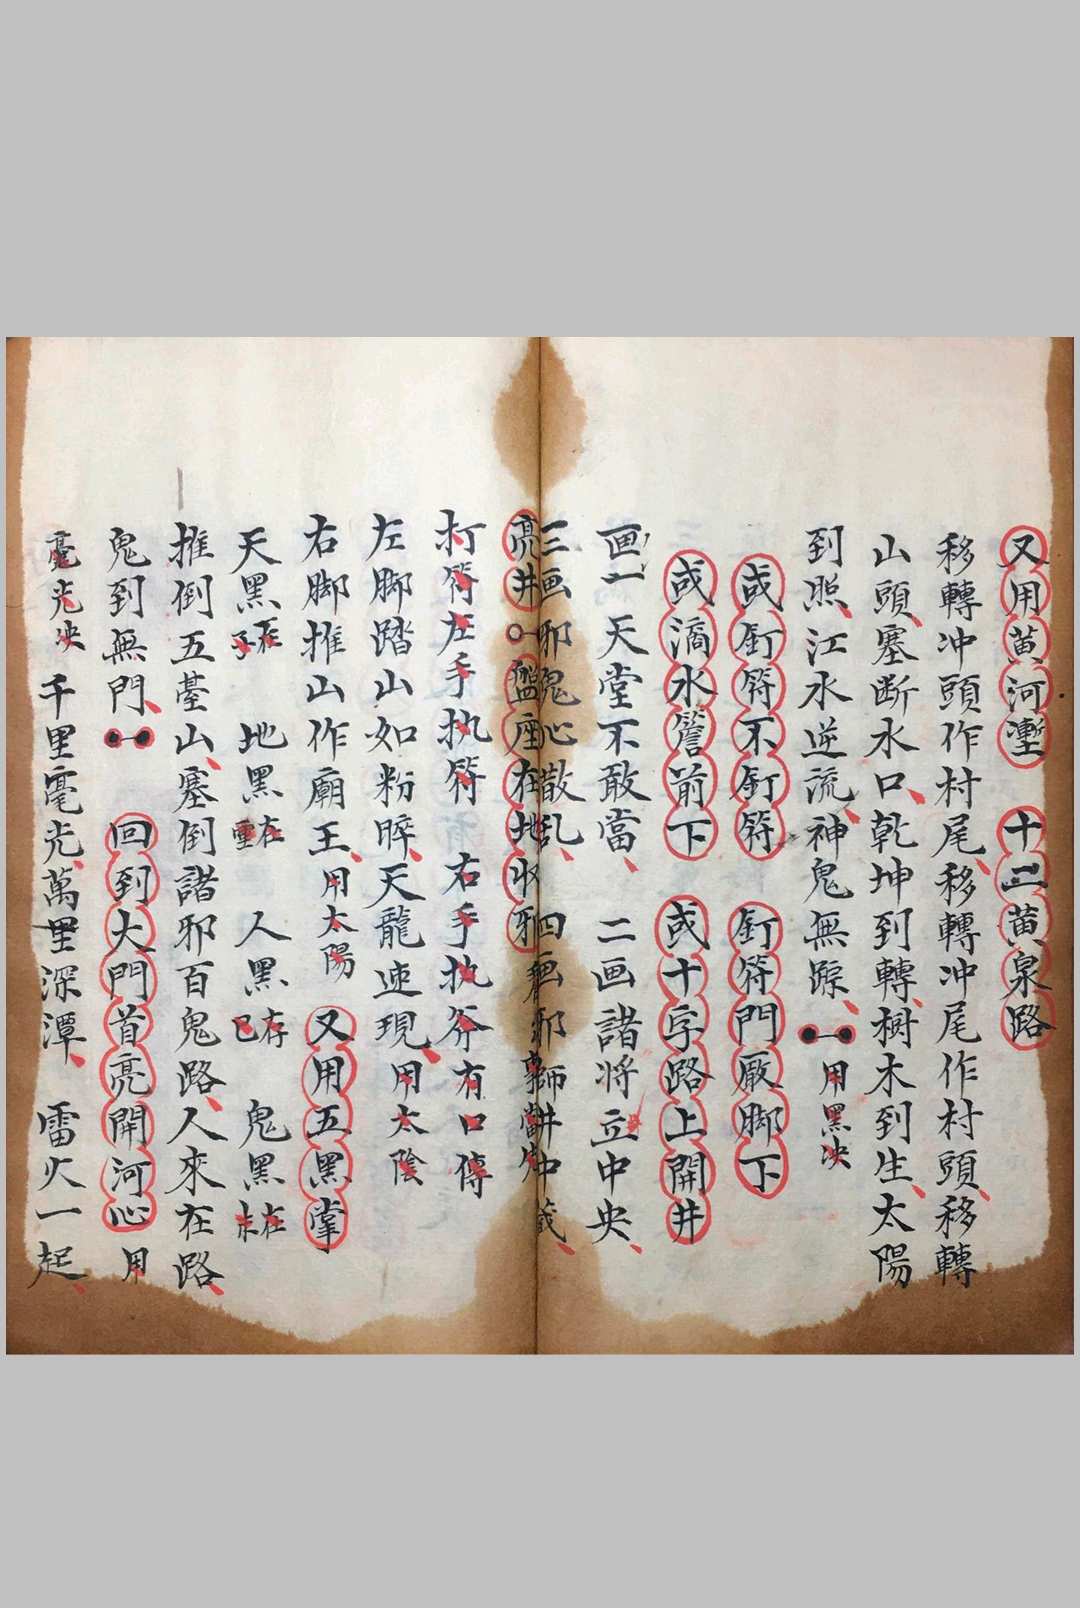 又用黄河壍 十二黄泉路
移轉冲頭作村尾移轉冲尾作村頭移轉
山頭塞断水口乾坤到轉樹木到生太陽
到照江水逆流神鬼無踪 用黑決
或釘符不釘符 釘符門厰脚下
或滴水簷前下 或十字路上開井
画一 天堂不敢當 二画諸将立中央
三画邪鬼心散乱 四画邪師井中藏
亮井 盤座在地收邪
打符左手执符 右手执斧有口傳
左脚踏山如粉碎天龍速現用太陰
右脚推山作廟王用太陽 又用五黑掌
天黑在子 地黑在 人黑存巳 鬼黑在未
推倒五臺山塞倒諸邪百鬼路人來在路
鬼到無門 回到大門首亮開河心 用
毫光決 千里毫光萬里深潭 雷火一起